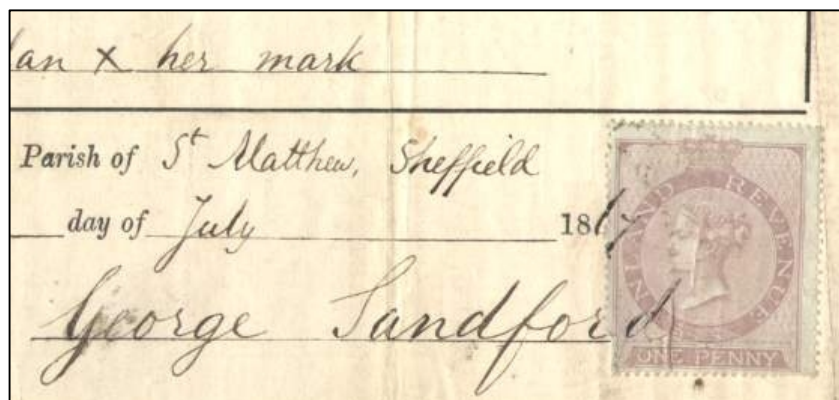 lan x her mark
Parish of St Matthew, Sheffield
day of July 1867
George Sandford
INLAND REVENUE
ONE PENNY